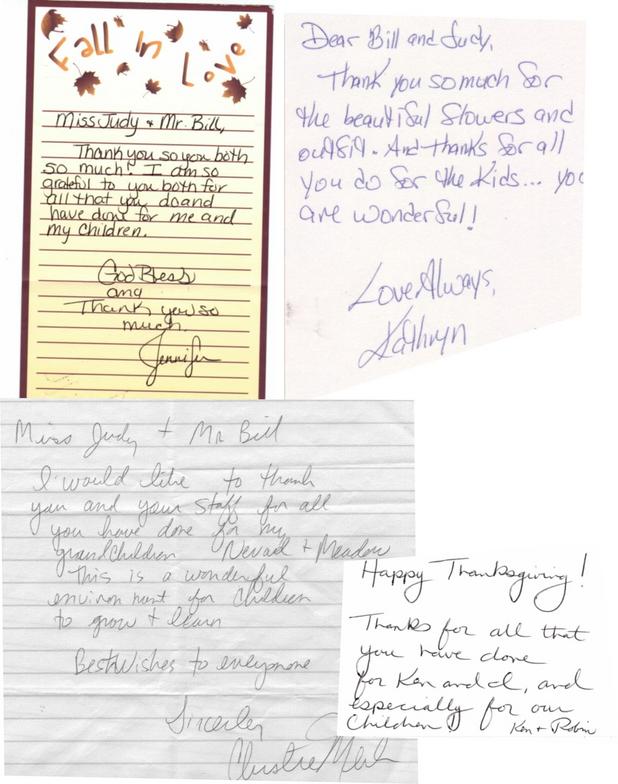 Fall in Love
Miss Judy + Mr. Bill,
Thank you so you both
so much! I am so
grateful to you both for
all that you do and
have done for me and
my children.
God Bless
and
Thank you so
much.
Jennifer
Dear Bill and Judy,
Thank you so much for
the beautiful flowers and
outfit. And thanks for all
you do for the Kids... you
are wonderful!
Love Always,
Kathryn
Miss Judy + Mr Bill
I would like to thank
you and your staff for all
you have done for my
grandchildren Nevaeh + Meadow
This is a wonderful
environment for children
to grow + learn
Best Wishes to everyone
Sincerley
Happy Thanksgiving!
Thanks for all that
you have done
for Ken and I, and
especially for our
Children!
Ken + Robin